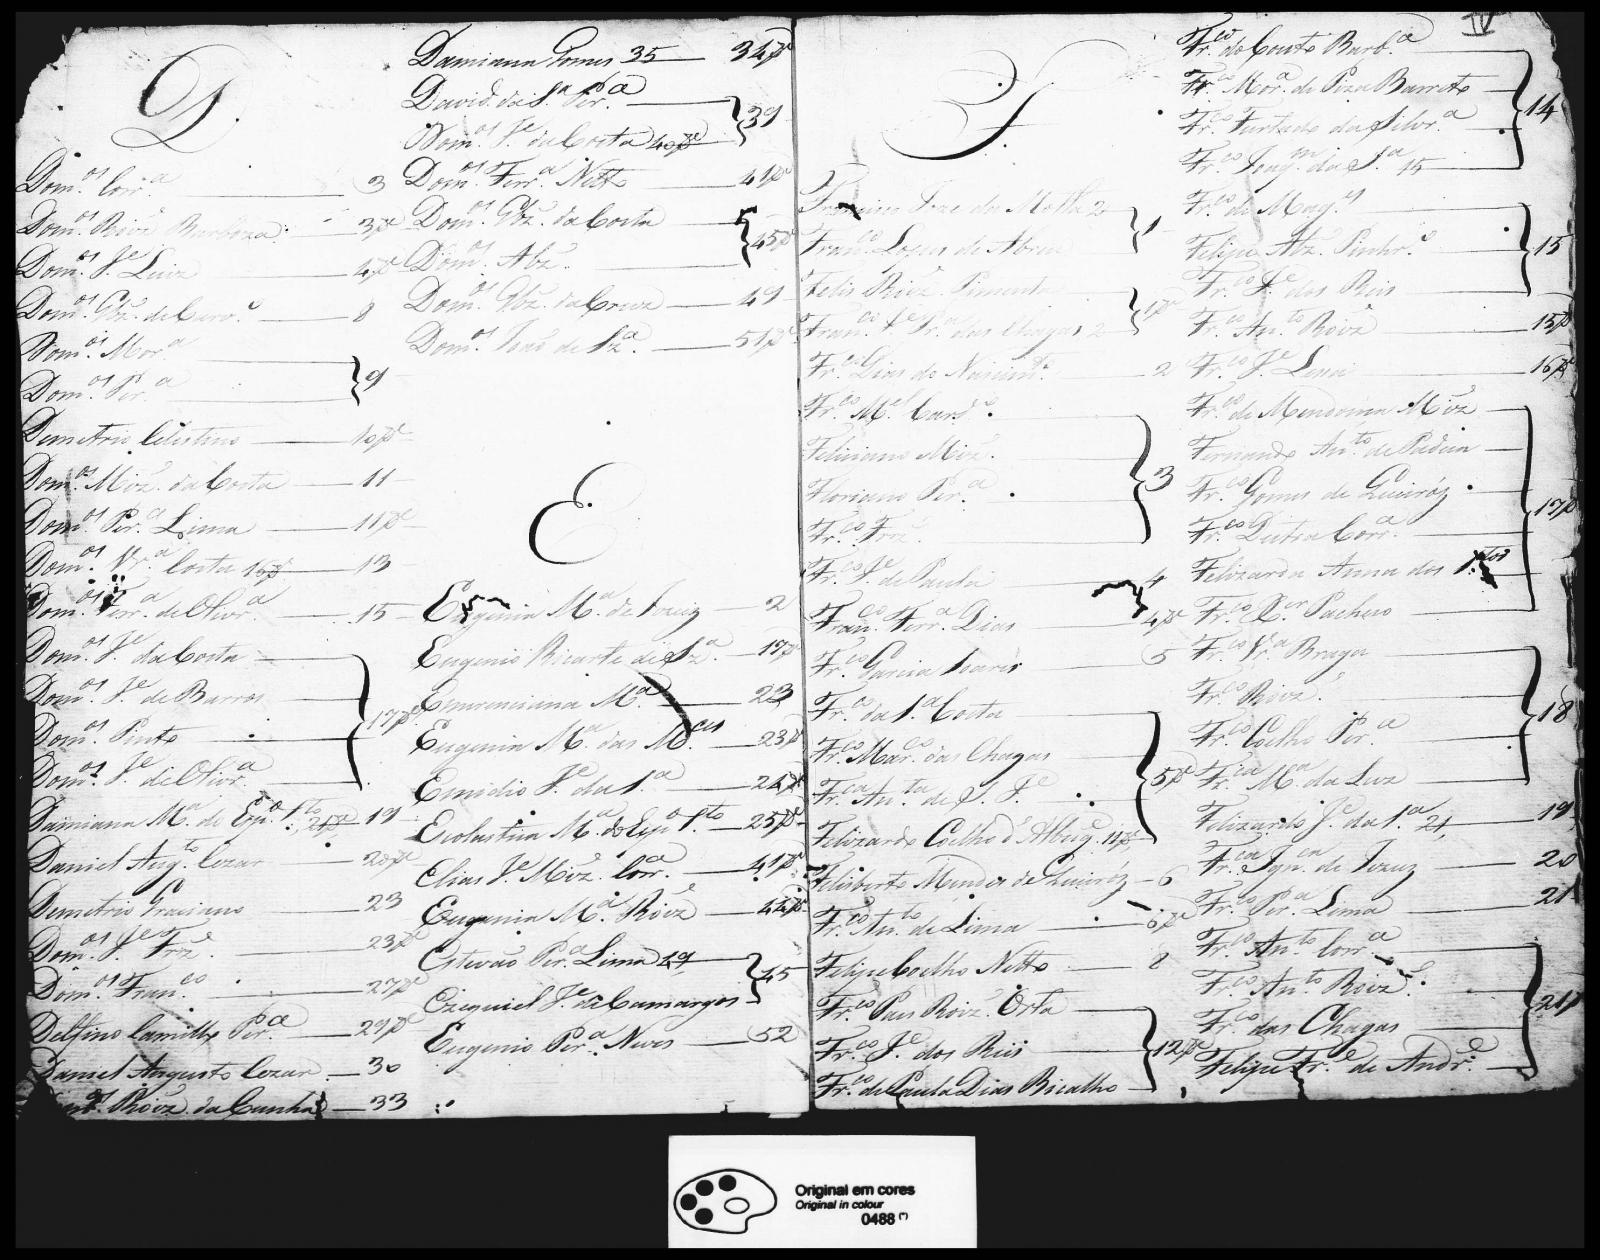 D.
Dom.os Corr.a 3
Dom.os Roiz Barboza 3
Dom.os J.e Luiz 4
Dom.os Glz. de Carv.o 8
Dom.os Mor.a
Dom.os Per.a 9
Demetrio Celestino 10
Dom.os Miz. da Costa 11
Dom.os Per.a Lima 11
Dom.os Vr.a Costa 13
Dom.os Ferr.a de Olivr.a 15
Dom.os J.e da Costa
Dom.os J.e de Barros
Dom.os Pinto 17
Dom.os J.e de Olivr.a
Damiana M.a do Esp.o S.to 19
Daniel Aug.to Cezar 20
Demetrio Graciano 23
Dom.os J.e Frz. 23
Dom.os Fran.co 27
Delfino Camillo Per.a 29
Daniel Augusto Cezar 30
Roiz da Cunha 33
Damiana Gomes 35 34
David da S.a Per.a
Dom.os J.e da Costa 40 39
Dom.os Ferr.a Netto 41
Dom.os Glz. da Costa
Dom.os Alz. 45
Dom.os Glz. da Cruz 49
Dom.os João de Sz.a 51
E
Eugenia M.a de Jesus 2
Eugenio Ricarte de Sz.a 17
Emerenciana M.a 23
Eugenia M.a das M.ces 23
Emidio J.e da S.a 24
Escolastica M.a do Esp.o S.to 25
Elias J.e Miz. Corr.a 41
Eugenia M.a Roiz 44
Estevão Per.a Lima 49
Ezequiel J.e de Camargos 45
Eugenio Per.a Neves 52
F
Francisco da Motta 2
Fran.co Lopes de Abreu 1
Felis Roiz Pimenta
Fran.co J.e Pr.a das Chagas 2
Fr.co Dias do Nascim.to 2
Fr.co M.el Card.o
Feliciano Miz.
Floriano Per.a 3
Fr.co Frz.
Fr.co J.e de Paula 4
Fran.co Ferr.a Dias 4
Fr.co Garcia Soares 5
Fr.co da S.a Costa
Fr.co Mar.co das Chagas
Fr.ca An.ta de S. J.e 5
Felizardo Coelho d'Albuq.e 11
Felisberto Mendes de Queiróz 6
Fr.co An.to de Lima 6
Felipe Coelho Netto 8
Fr.co Pais Roiz. Orta
Fr.co J.e dos Reis 12
Fr.co de Paula Dias Bicalho
IV
Fr.co do Couto Barb.a
Fr.co Mor.a de Piza Barreto
Fr.co Furtado da Silvr.a 14
Fr.co Joaq.m da S.a 15
Fr.co de Mag.es
Felipe Alz. Pinhr.o 15
Fr.co J.e dos Reis
Fr.co An.to Roiz 15
Fr.co J.e Lima 16
Fr.co de Mendonça Miz
Fernando An.to de Padua
Fr.co Gomes de Queiróz
Fr.co Dutra Corr.a 17
Felizarda Anna dos
Fr.co X.er Pacheco
Fr.co Vr.a Braga
Fr.co Roiz.
Fr.co Coelho Per.a 18
Fr.ca M.a da Luz
Felizardo J.e da S.a 21 19
Fr.ca Ign.ca de Jezus 20
Fr.co Per.a Lima 21
Fr.co An.to Corr.a
Fr.co An.to Roiz
Fr.co das Chagas 21
Felipe Fr.e de Andr.e
Original em cores
Original in colour
0488 (*)